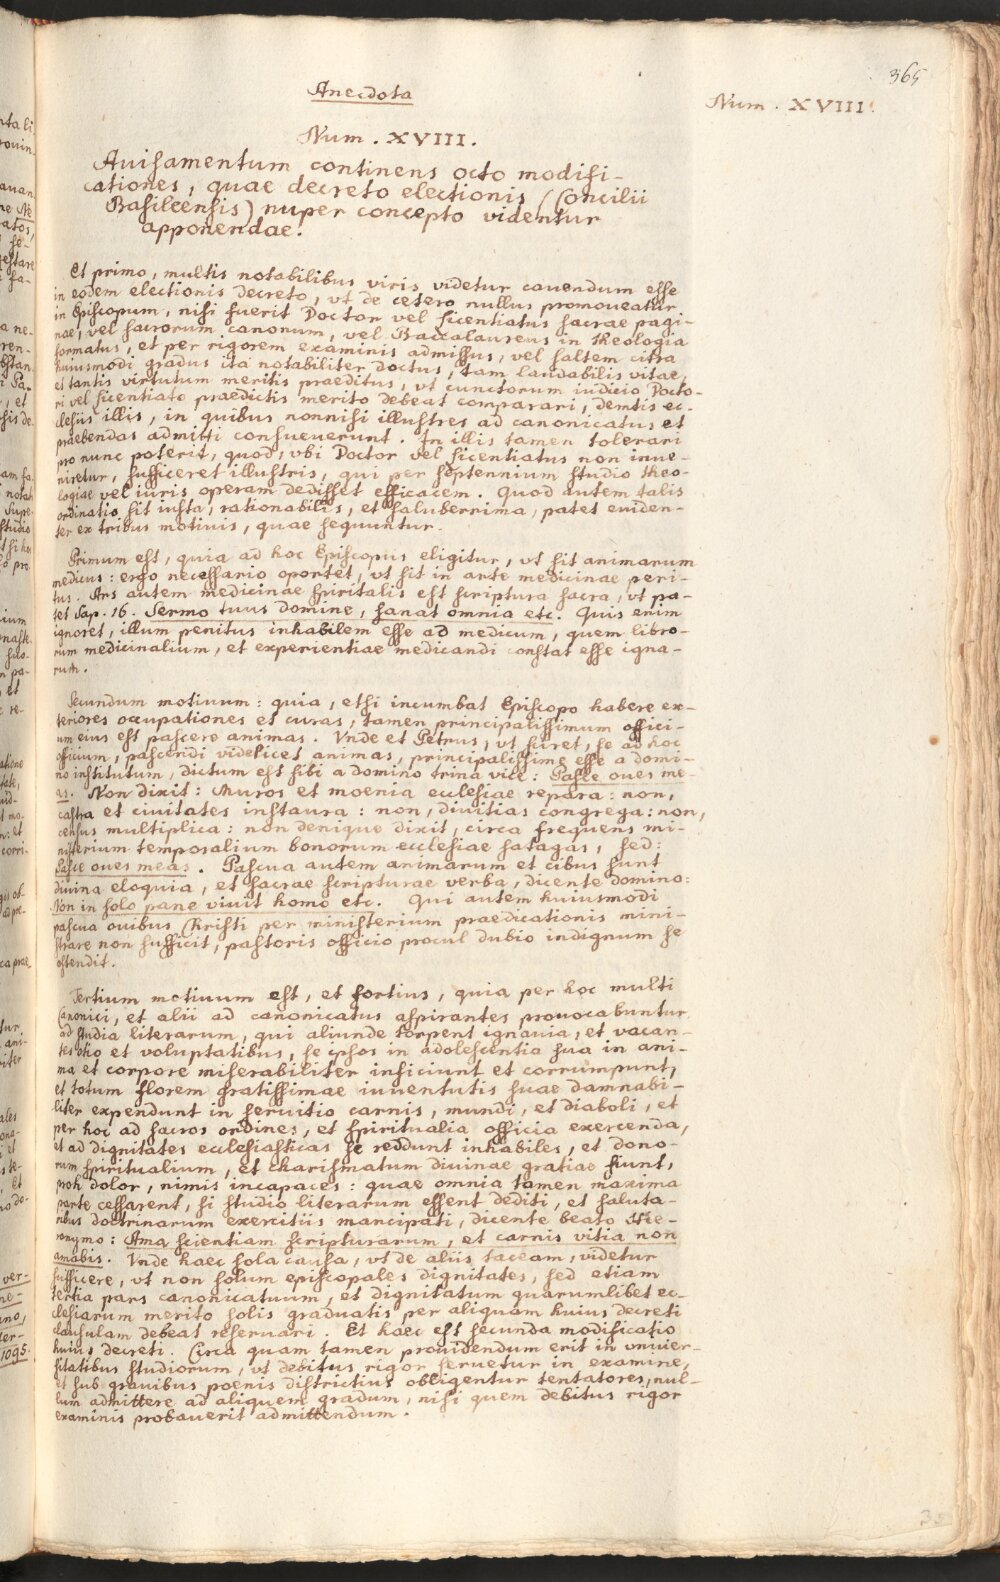 365
Anecdota
Num. XVIII.
Num. XVIII.
Auisamentum continens octo modifi-
cationes, quae decreto electionis (Concilii
Basileensis) nuper concepto videntur
apponendae.
Et primo, multis notabilibus viris videtur cauendum esse
in eodem electionis decreto, vt de cetero nullus promoueatur
in Episcopum, nisi fuerit Doctor vel licentiatus sacrae pagi-
nae, vel sacrorum canonum, vel Baccalaureus in theologia
formatus, et per rigorem examinis admissus, vel saltem citra
huiusmodi gradus ita notabiliter doctus, tam laudabilis vitae,
et tantis virtutum meritis praeditus, vt cunctorum iudicio Docto-
ri vel licentiato praedictis merito debeat comparari, demtis ec-
clesiis illis, in quibus nonnisi illustres ad canonicatus et
praebendas admitti consueuerunt. In illis tamen tolerari
pro nunc poterit, quod, vbi Doctor vel licentiatus non inue-
niretur, sufficeret illustris, qui per septennium studio theo-
logiae vel iuris operam dedisset efficacem. Quod autem talis
ordinatio sit iusta, rationabilis, et saluberrima, patet euiden-
ter ex tribus motiuis, quae sequuntur.
Primum est, quia ad hoc Episcopus eligitur, vt sit animarum
medicus: ergo necessario oportet, vt sit in arte medicinae peri-
tus. Ars autem medicinae spiritalis est scriptura sacra, vt pa-
tet Sap. 16. Sermo tuus domine, sanat omnia etc. Quis enim
ignoret, illum penitus inhabilem esse ad medicum, quem libro-
rum medicinalium, et experientiae medicandi constat esse igna-
rum.
Secundum motiuum: quia, etsi incumbat Episcopo habere ex-
teriores occupationes et curas, tamen principalissimum offici-
um eius est pascere animas. Vnde et Petrus, vt sciret, se ad hoc
officium, pascendi videlicet animas, principalissime esse a domi-
no institutum, dictum est sibi a domino trina vice: Pasce oues me-
as. Non dixit: Muros et moenia ecclesiae repara: non,
castra et ciuitates instaura: non, diuitias congrega: non,
census multiplica: non denique dixit, circa frequens mi-
nisterium temporalium bonorum ecclesiae satagas, sed:
Pasce oues meas. Pascua autem animarum et cibus sunt
diuina eloquia, et sacrae scripturae verba, dicente domino:
Non in solo pane viuit homo etc. Qui autem huiusmodi
pascua ouibus Christi per ministerium praedicationis mini-
strare non sufficit, pastoris officio procul dubio indignum se
ostendit.
Tertium motiuum est, et fortius, quia per hoc multi
Canonici, et alii ad canonicatus aspirantes prouocabuntur
ad studia literarum, qui aliunde torpent ignauia, et vacan-
tes otio et voluptatibus, se ipsos in adolescentia sua in ani-
ma et corpore miserabiliter inficiunt et corrumpunt,
et totum florem gratissimae iuuentutis suae damnabi-
liter expendunt in seruitio carnis, mundi, et diaboli, et
per hoc ad sacros ordines, et spiritualia officia exercenda,
et ad dignitates ecclesiasticas se reddunt inhabiles, et dono-
rum spiritualium, et charismatum diuinae gratiae fiunt,
proh dolor, nimis incapaces: quae omnia tamen maxima
parte cessarent, si studio literarum essent dediti, et saluta-
ribus doctrinarum exercitiis mancipati, dicente beato Hie-
ronymo: Ama scientiam scripturarum, et carnis vitia non
amabis. Vnde haec sola causa, vt de aliis taceam, videtur
sufficere, vt non solum episcopales dignitates, sed etiam
tertia pars canonicatuum, et dignitatum quarumlibet ec-
clesiarum merito solis graduatis per aliquam huius decreti
clausulam debeat reseruari. Et haec est secunda modificatio
huius decreti. Circa quam tamen prouidendum erit in vniuer-
sitatibus studiorum, vt debitus rigor seruetur in examine,
et sub grauibus poenis districtius obligentur tentatores, nul-
lum admittere ad aliquem gradum, nisi quem debitus rigor
examinis probauerit admittendum.